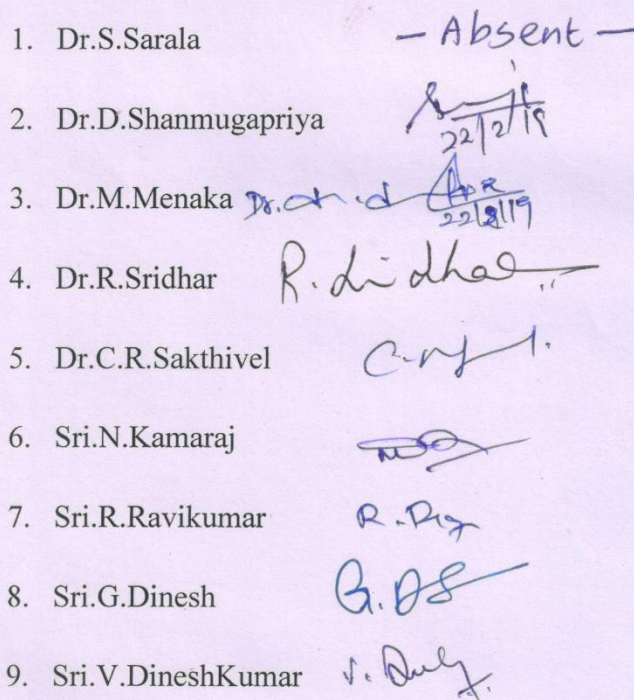 1. Dr.S.Sarala - Absent -
2. Dr.D.Shanmugapriya 22/2/19
3. Dr.M.Menaka Dr. 22/2/19
4. Dr.R.Sridhar R. Sridhar
5. Dr.C.R.Sakthivel
6. Sri.N.Kamaraj
7. Sri.R.Ravikumar R.
8. Sri.G.Dinesh G.
9. Sri.V.DineshKumar V.